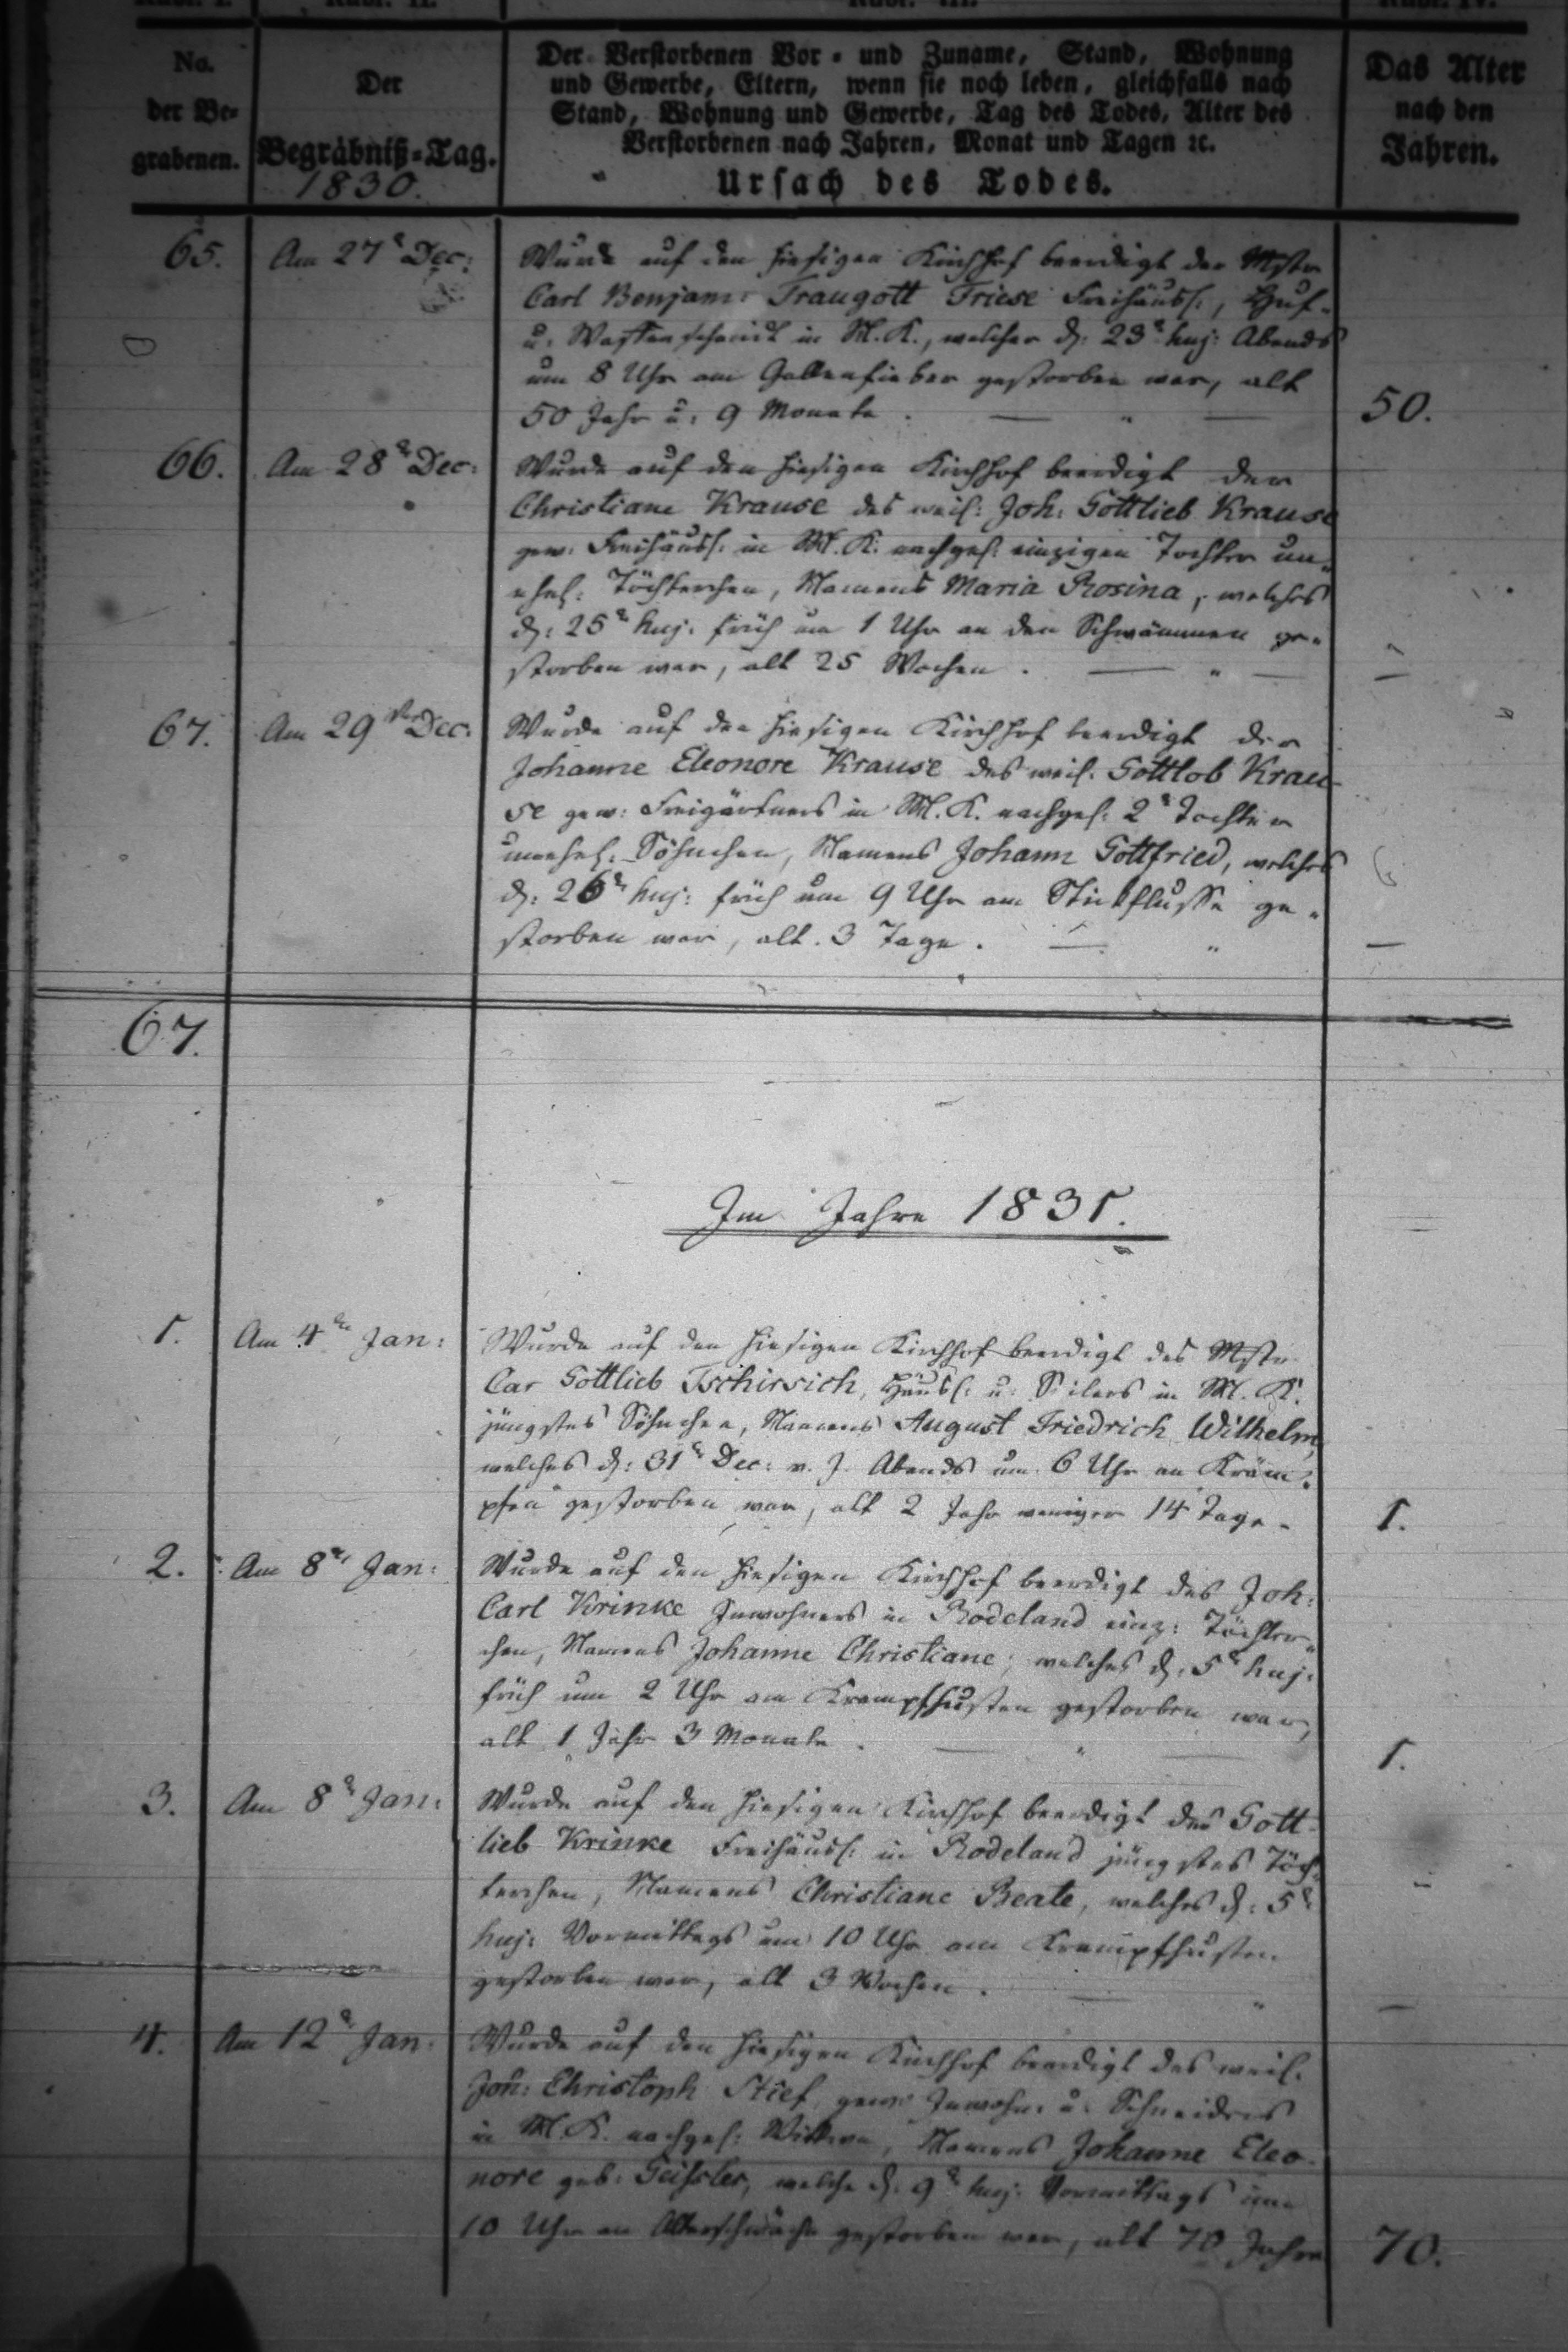 No.
der Be-
grabenen.
Der
Begräbniß-Tag.
1830.
Der Verstorbenen Vor- und Zuname, Stand, Wohnung
und Gewerbe, Eltern, wenn sie noch leben, gleichfalls nach
Stand, Wohnung und Gewerbe, Tag des Todes, Alter des
Verstorbenen nach Jahren, Monat und Tagen ꝛc.
Ursach des Todes.
Das Alter
nach den
Jahren.
65. Am 27t Dec: Wurde auf den hiesigen Kirchhof beerdigt der Mstr
Carl Benjam: Traugott Friese Freihäusl:, Huf-
u. Waffenschmidt in M. K., welcher d: 23t huj: Abends
um 8 Uhr am Gallenfieber gestorben war, alt
50 Jahr u: 9 Monate. 50.
66. Am 28t Dec: Wurde auf den hiesigen Kirchhof beerdigt der
Christiane Krause des weil: Joh: Gottlieb Krause
gew: Freihäusl: in M. K. nachgel: einzigen Tochter un-
ehel: Töchterchen, Namens Maria Rosina, welches
d: 25t huj: früh um 1 Uhr an den Schwämmen ge-
storben war, alt 25 Wochen. —
67. Am 29ten Dec: Wurde auf den hiesigen Kirchhof beerdigt der
Johanne Eleonore Krause des weil: Gottlob Krau-
se gew: Freigärtners in M. K. nachgel: 2t Tochter
unehel: Söhnchen, Namens Johann Gottfried, welches
d: 26t huj: früh um 9 Uhr am Stickflusse ge-
storben war, alt 3 Tage. —
67.
Im Jahre 1831.
1. Am 4ten Jan: Wurde auf den hiesigen Kirchhof beerdigt des Mstr
Car Gottlieb Tschirsich, Häusl: u: Seilers in M. K.
jüngstes Söhnchen, Namens August Friedrich Wilhelm,
welches d: 31t Dec: v. J. Abends um 6 Uhr an Kräm-
pfen gestorben war, alt 2 Jahr weniger 14 Tage. 1.
2. Am 8ten Jan: Wurde auf den hiesigen Kirchhof beerdigt des Joh:
Carl Krinke Inwohners in Rodeland einz: Töchter-
chen, Namens Johanne Christiane, welches d: 5t huj:
früh um 2 Uhr am Krampfhusten gestorben war,
alt 1 Jahr 3 Monate. 1.
3. Am 8t Jan: Wurde auf den hiesigen Kirchhof beerdigt des Gott-
lieb Krinke Freihäusl: in Rodeland jüngstes Töch-
terchen, Namens Christiane Beate, welches d: 5t
huj: Vormittags um 10 Uhr am Krampfhusten
gestorben war, alt 3 Wochen. —
4. Am 12t Jan: Wurde auf den hiesigen Kirchhof beerdigt des weil:
Joh: Christoph Stief, gew: Inwohn: u: Schneiders
in M. K. nachgel: Wittwe, Namens Johanne Eleo-
nore geb: Geissler, welche d: 9t huj: Vormittags um
10 Uhr an Altersschwäche gestorben war, alt 70 Jahre 70.